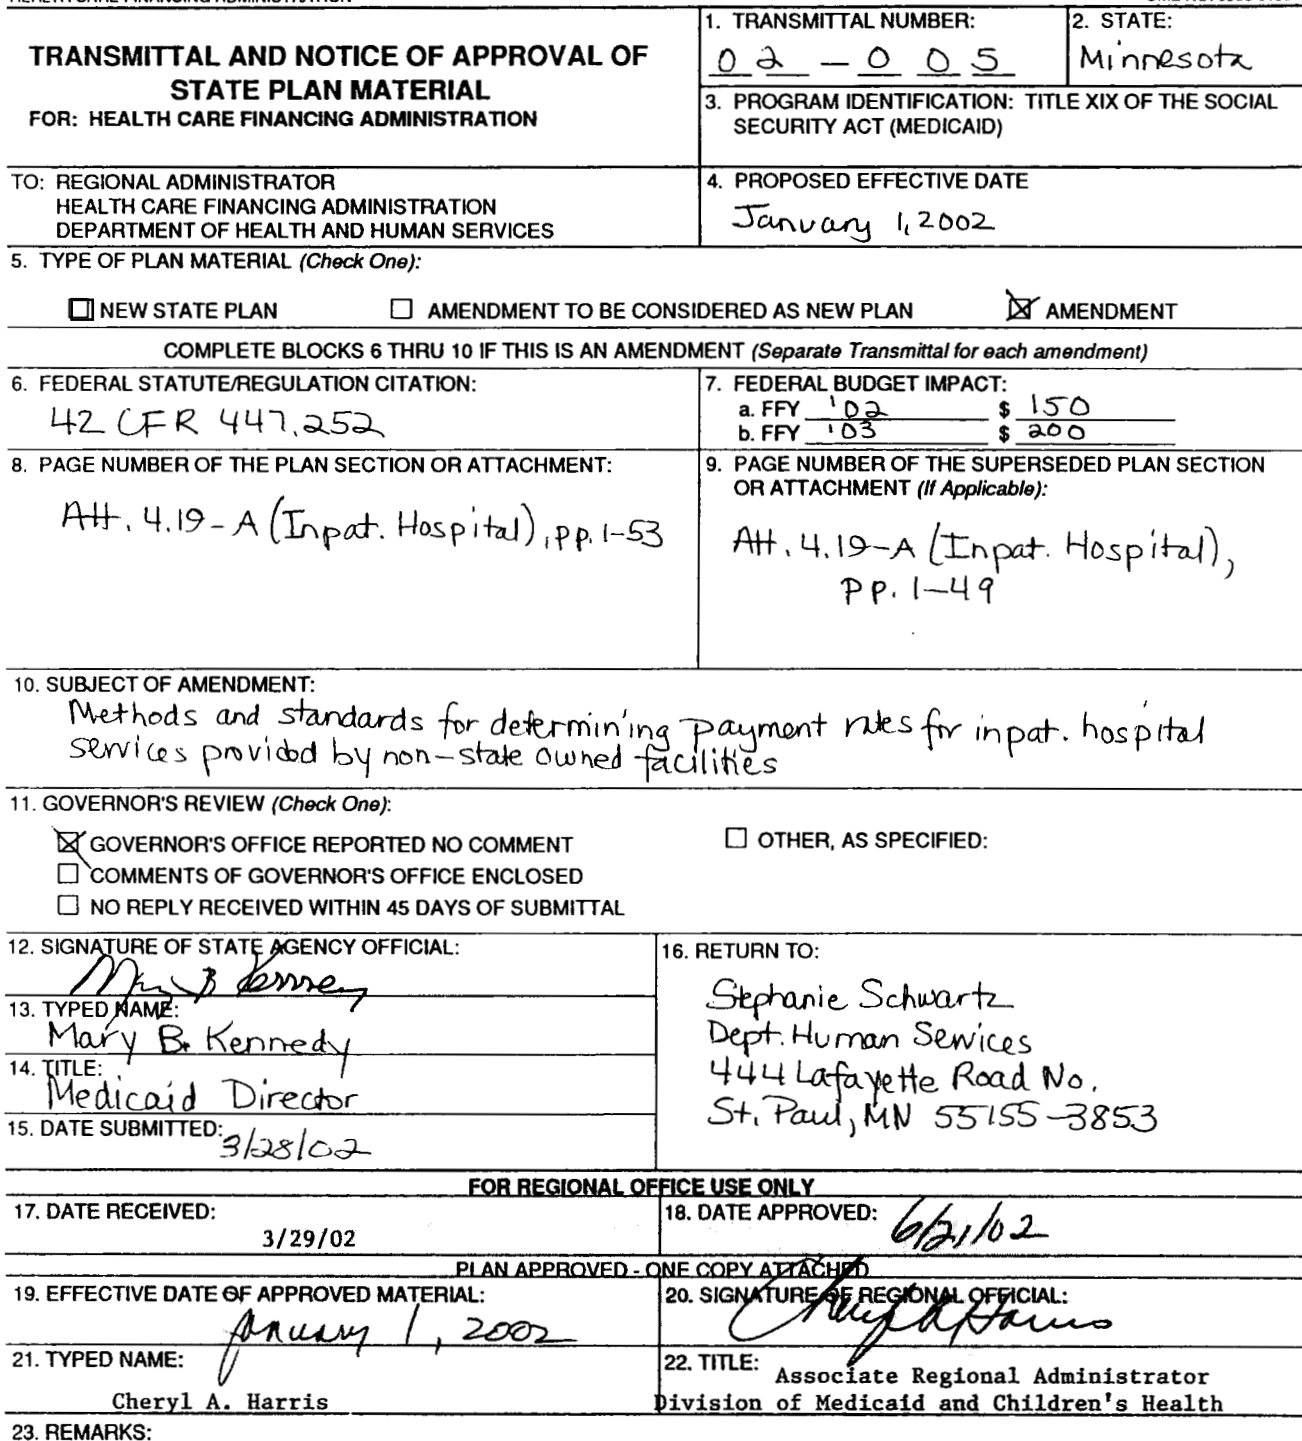 TRANSMITTAL AND NOTICE OF APPROVAL OF
STATE PLAN MATERIAL
FOR: HEALTH CARE FINANCING ADMINISTRATION
1. TRANSMITTAL NUMBER:
02-005
2. STATE:
Minnesota
3. PROGRAM IDENTIFICATION: TITLE XIX OF THE SOCIAL
SECURITY ACT (MEDICAID)
TO: REGIONAL ADMINISTRATOR
HEALTH CARE FINANCING ADMINISTRATION
DEPARTMENT OF HEALTH AND HUMAN SERVICES
4. PROPOSED EFFECTIVE DATE
January 1, 2002
5. TYPE OF PLAN MATERIAL (Check One):
NEW STATE PLAN AMENDMENT TO BE CONSIDERED AS NEW PLAN AMENDMENT
COMPLETE BLOCKS 6 THRU 10 IF THIS IS AN AMENDMENT (Separate Transmittal for each amendment)
6. FEDERAL STATUTE/REGULATION CITATION:
42 CFR 447.252
7. FEDERAL BUDGET IMPACT:
a. FFY '02 $ 150
b. FFY '03 $ 200
8. PAGE NUMBER OF THE PLAN SECTION OR ATTACHMENT:
Att. 4.19-A (Inpat. Hospital), pp. 1-53
9. PAGE NUMBER OF THE SUPERSEDED PLAN SECTION
OR ATTACHMENT (If Applicable):
Att. 4.19-A (Inpat. Hospital),
pp. 1-49
10. SUBJECT OF AMENDMENT:
Methods and standards for determining payment rates for inpat. hospital
services provided by non-state owned facilities
11. GOVERNOR'S REVIEW (Check One):
GOVERNOR'S OFFICE REPORTED NO COMMENT
COMMENTS OF GOVERNOR'S OFFICE ENCLOSED
NO REPLY RECEIVED WITHIN 45 DAYS OF SUBMITTAL
OTHER, AS SPECIFIED:
12. SIGNATURE OF STATE AGENCY OFFICIAL:
Mary B Kennedy
13. TYPED NAME:
Mary B. Kennedy
14. TITLE:
Medicaid Director
15. DATE SUBMITTED:
3/28/02
16. RETURN TO:
Stephanie Schwartz
Dept. Human Services
444 Lafayette Road No.
St. Paul, MN 55155-3853
FOR REGIONAL OFFICE USE ONLY
17. DATE RECEIVED:
3/29/02
18. DATE APPROVED:
6/21/02
PLAN APPROVED - ONE COPY ATTACHED
19. EFFECTIVE DATE OF APPROVED MATERIAL:
January 1, 2002
20. SIGNATURE OF REGIONAL OFFICIAL:
Cheryl A Harris
21. TYPED NAME:
Cheryl A. Harris
22. TITLE:
Associate Regional Administrator
Division of Medicaid and Children's Health
23. REMARKS: